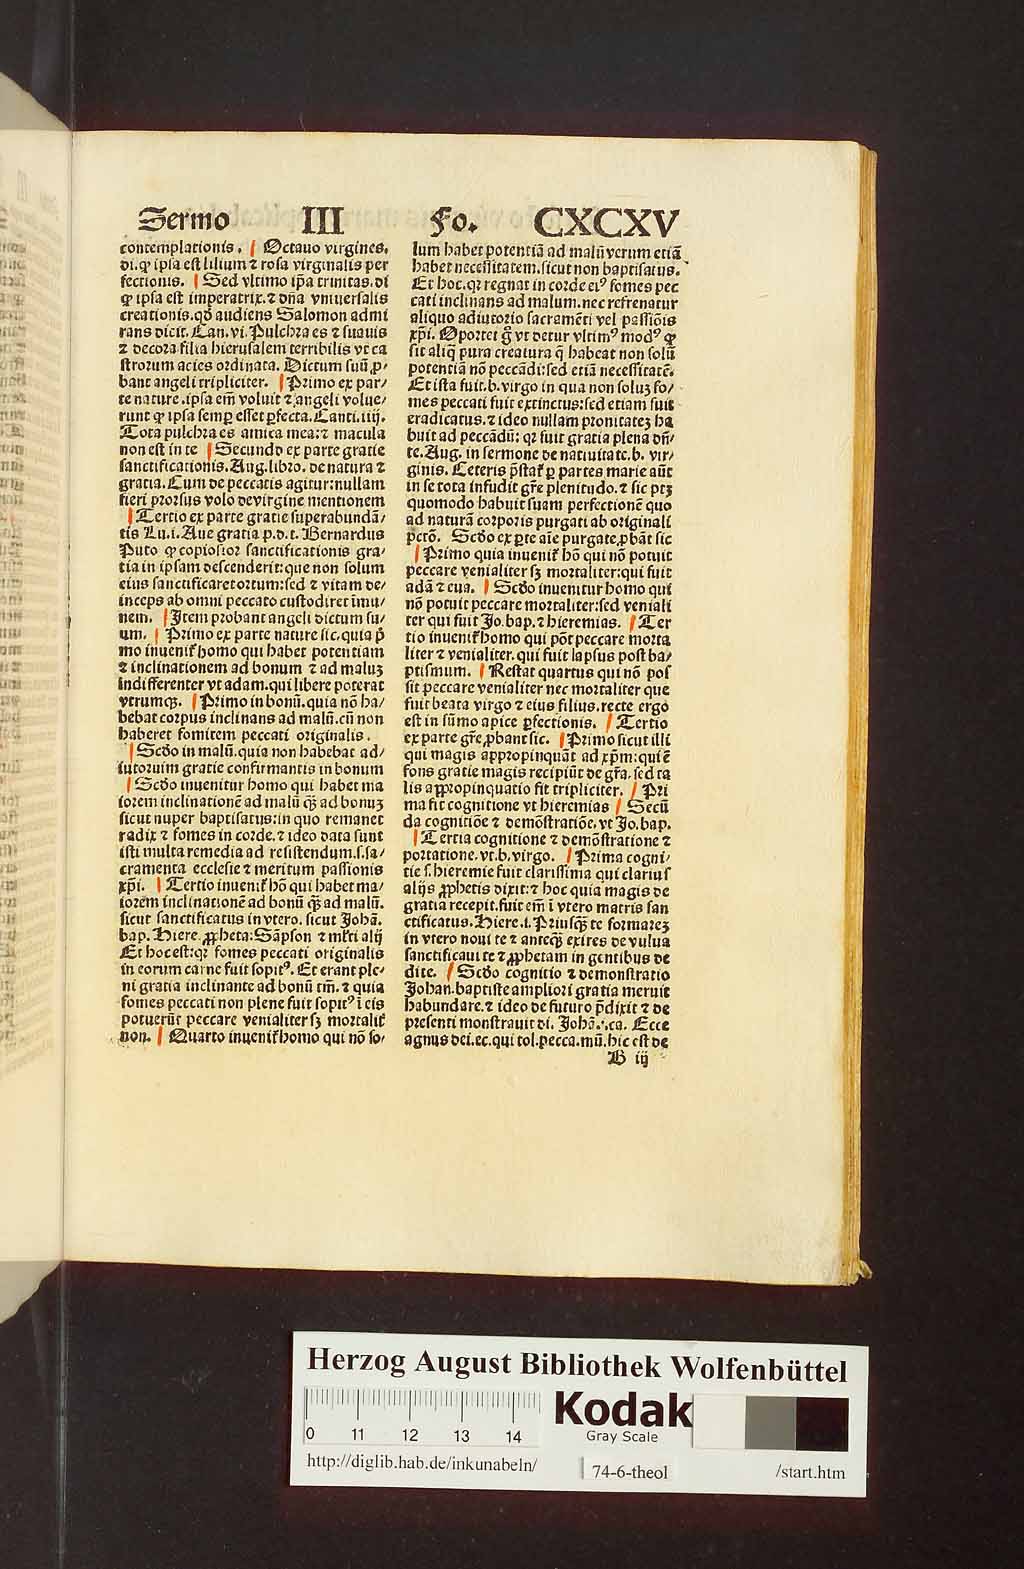 Sermo III Fo. CXCXV
contemplationis. Octauo virgines.
di. ꝙ ipsa est lilium ⁊ rosa virginalis per
fectionis. Sed vltimo ip̄a trinitas. di
ꝙ ipsa est imperatrix. ⁊ dn̄a vniuersalis
creationis. qd̄ audiens Salomon admi
rans dicit. Can. vi. Pulchra es ⁊ suauis
⁊ decora filia hierusalem terribilis vt ca
strorum acies ordinata. Dictum suū ꝓ-
bant angeli tripliciter. Primo ex par/
te nature. ipsa em̄ voluit ⁊ angeli volue/
runt ꝙ ipsa semꝑ esset ꝑfecta. Canti. iiij.
Tota pulchra es amica mea: ⁊ macula
non est in te Secundo ex parte gratie
sanctificationis. Aug. libro. de natura ⁊
gratia. Cum de peccatis agitur: nullam
fieri prorsus volo de virgine mentionem
Tertio ex parte gratie superabundā/
tis Lu. i. Aue gratia p. d. t. Bernardus
Puto ꝙ copiosior sanctificationis gra/
tia in ipsam descenderit: que non solum
eius sanctificaret ortum: sed ⁊ vitam de/
inceps ab omni peccato custodiret īmu/
nem. Item probant angeli dictum su/
um. Primo ex parte nature sic. quia p̄
mo inuenit᷑ homo qui habet potentiam
⁊ inclinationem ad bonum ⁊ ad maluꝫ
indifferenter vt adam. qui libere poterat
vtrumqꝫ. Primo in bonū. quia nō ha/
bebat corpus inclinans ad malū. cū non
haberet fomitem peccati originalis.
Scd̄o in malū. quia non habebat ad/
iutoruim gratie confirmantis in bonum
Scd̄o inuenitur homo qui habet ma
iorem inclinationē ad malū qꝫ̄ ad bonuꝫ
sicut nuper baptisatus: in quo remanet
radix ⁊ fomes in corde. ⁊ ideo data sunt
isti multa remedia ad resistendum. s. sa/
cramenta ecclesie ⁊ meritum passionis
xp̄i. Tertio inuenit᷑ hō qui habet ma/
iorem inclinationē ad bonū qꝫ̄ ad malū.
sicut sanctificatus in vtero. sicut Johā.
bap. Hiere. ꝓpheta: Sāpson ⁊ ml̄ti alij
Et hoc est: qꝛ fomes peccati originalis
in eorum carne fuit sopitꝰ. Et erant ple/
ni gratia inclinante ad bonū tm̄. ⁊ quia
fomes peccati non plene fuit sopitꝰ ī eis
potuerūt peccare venialiter sꝫ mortalit᷑
non. Quarto inuenit᷑ homo qui nō so/
lum habet potentiā ad malū verum etiā
habet necessitatem. sicut non baptisatus.
Et hoc. qꝛ regnat in corde eiꝰ fomes pec
cati inclinans ad malum. nec refrenatur
aliquo adiutorio sacramēti vel passiōis
xp̄i. Oportet g̊ vt detur vltimꝰ modꝰ ꝙ
sit aliq̄ pura creatura q̄ habeat non solū
potentiā nō peccādi: sed etiā necessitatē.
Et ista fuit. b. virgo in qua non soluꝫ fo/
mes peccati fuit extinctus: sed etiam fuit
eradicatus. ⁊ ideo nullam pronitateꝫ ha
buit ad peccādū: qꝛ fuit gratia plena dn̄/
te. Aug. in sermone de natiuitate. b. vir/
ginis. Ceteris p̄stat᷑ ꝑ partes marie aūt
in se tota infudit gr̄e plenitudo. ⁊ sic ptꝫ
quomodo habuit suam perfectionē quo
ad naturā corporis purgati ab originali
pctō. Scd̄o ex ꝑte aīe purgate. ꝓbāt sic
Primo quia inuenit᷑ hō qui nō potuit
peccare venialiter sꝫ mortaliter: qui fuit
adā ⁊ eua. Scd̄o inuenitur homo qui
nō potuit peccare mortaliter: sed veniali
ter qui fuit Jo. bap. ⁊ hieremias. Ter
tio inuenit᷑ homo qui pōt peccare morta
liter ⁊ venialiter. qui fuit lapsus post ba/
ptismum. Restat quartus qui nō pos
sit peccare venialiter nec mortaliter que
fuit beata virgo ⁊ eius filius. recte ergo
est in sūmo apice ꝑfectionis. Tertio
ex parte gr̄e ꝓbant sic. Primo sicut illi
qui magis appropinquāt ad xp̄m: qui ē
fons gratie magis recipiūt de gr̄a. sed ta
lis aꝓpropinquatio fit tripliciter. Pri
ma fit cognitione vt hieremias Secū
da cognitiōe ⁊ demōstratiōe. vt Jo. bap.
Tertia cognitione ⁊ demōstratione ⁊
portatione. vt. b. virgo. Prima cogni/
tie s. hieremie fuit clarissima qui clarius
alijs ꝓphetis dixit: ⁊ hoc quia magis de
gratia recepit. fuit em̄ ī vtero matris san
ctificatus. Hiere. i. Priusqꝫ̄ te formareꝫ
in vtero noui te ⁊ anteqꝫ̄ exires de vulua
sanctificaui te ⁊ ꝓphetam in gentibus de
dite. Scd̄o cognitio ⁊ demonstratio
Johan. baptiste ampliori gratia meruit
habundare. ⁊ ideo de futuro p̄dixit ⁊ de
presenti monstrauit di. Johā. .ca. Ecce
agnus dei. ec. qui tol. pecca. mū. hic est de
B iij
Herzog August Bibliothek Wolfenbüttel
Kodak
Gray Scale
0 11 12 13 14
http://diglib.hab.de/inkunabeln/ 74-6-theol /start.htm